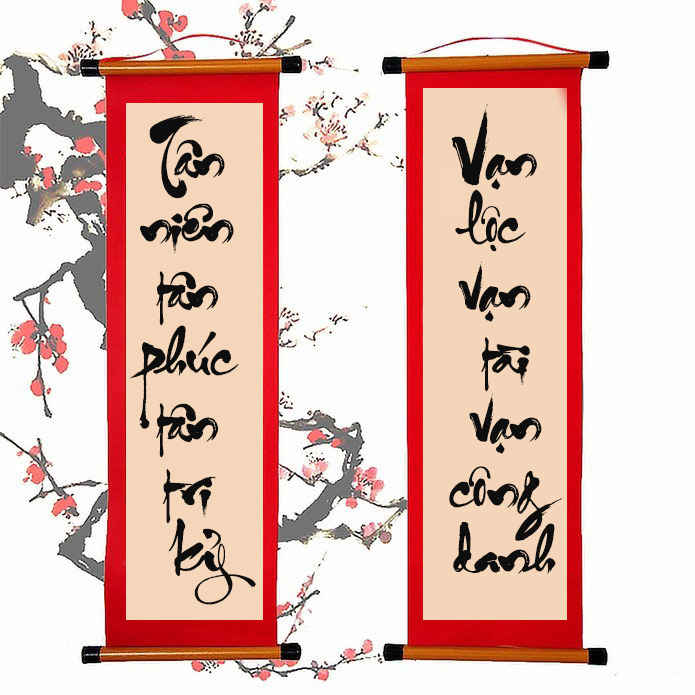 Tân
niên
tân
phúc
tân
tri
kỷ
Vạn
lộc
vạn
tài
vạn
công
danh